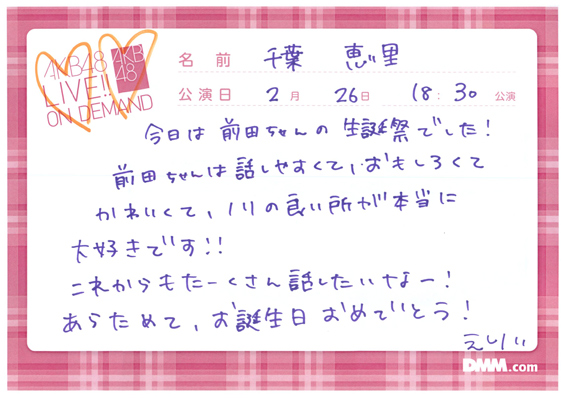 AKB48
LIVE!!
ON DEMAND
AKB
48
名前 千葉 恵里
公演日 2月 26日 18:30 公演
今日は前田ちゃんの生誕祭でした!
前田ちゃんは話しやすくて、おもしろくて
かわいくて、ノリの良い所が本当に
大好きです!!
これからもたーくさん話したいなー!
あらためて、お誕生日おめでとう!
えりい
DMM.com